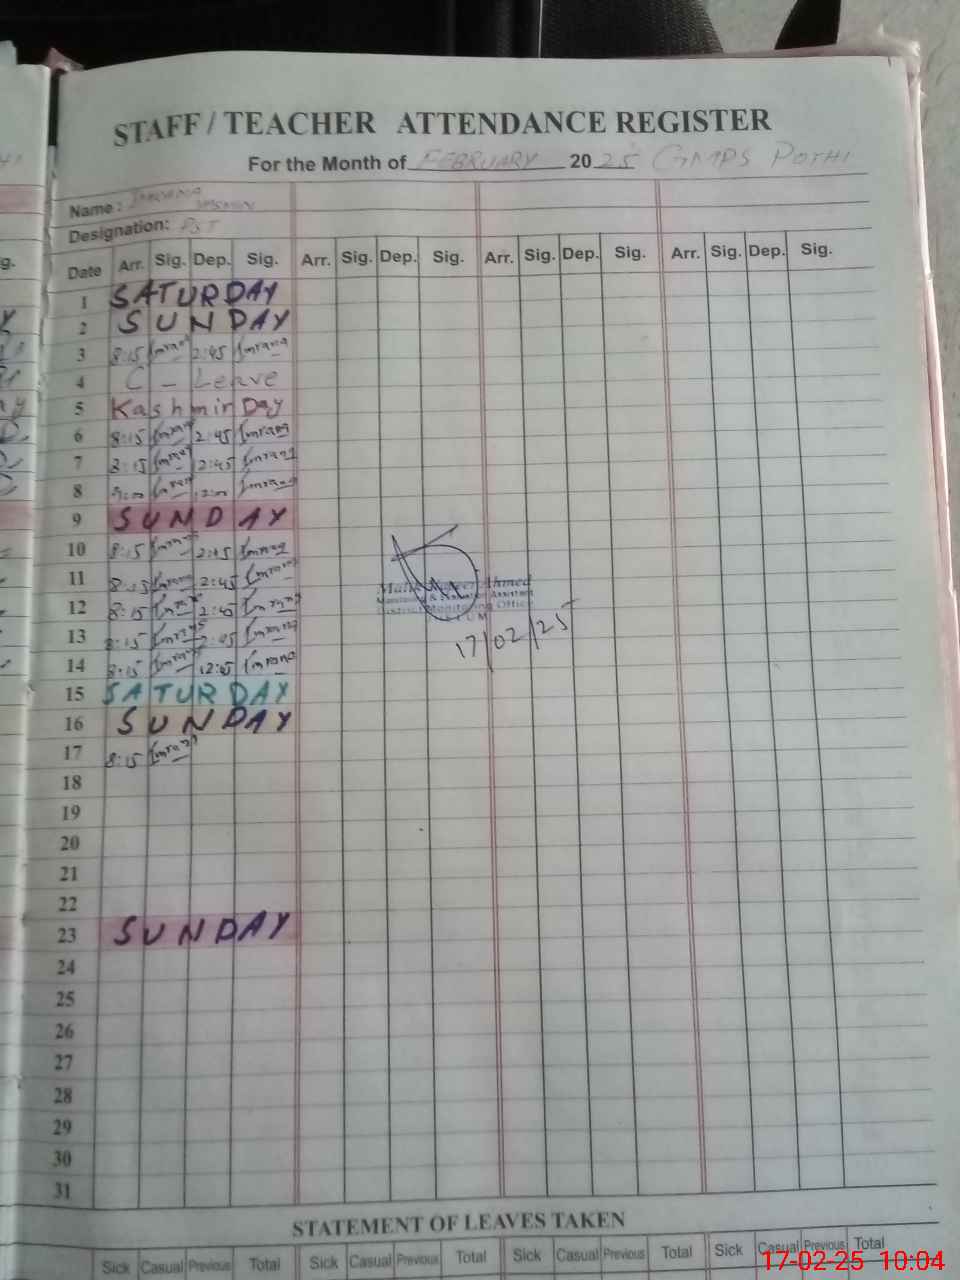 STAFF / TEACHER ATTENDANCE REGISTER
For the Month of FEBRUARY 2025 GMPS POTHI
Name: IMRANA YASMIN
Designation: PST
Date Arr. Sig. Dep. Sig. Arr. Sig. Dep. Sig. Arr. Sig. Dep. Sig. Arr. Sig. Dep. Sig.
1 SATURDAY
2 SUNDAY
3 8:15 Imrana 2:45 Imrana
4 C - Leave
5 Kashmir Day
6 8:15 Imrana 2:45 Imrana
7 8:15 Imrana 2:45 Imrana
8 9:00 Imrana 12:00 Imrana
9 SUNDAY
10 8:15 Imrana 2:45 Imrana
11 8:15 Imrana 2:45 Imrana
Ahmed
12 8:15 Imrana 2:45 Imrana
Monitoring & Evaluation Assistant
District Monitoring Office
13 8:15 Imrana 2:45 Imrana
17/02/25
14 8:15 Imrana 12:45 Imrana
15 SATURDAY
16 SUNDAY
17 8:15 Imrana
18
19
20
21
22
23 SUNDAY
24
25
26
27
28
29
30
31
STATEMENT OF LEAVES TAKEN
Sick Casual Previous Total Sick Casual Previous Total Sick Casual Previous Total Sick Casual Previous Total
17-02-25 10:04